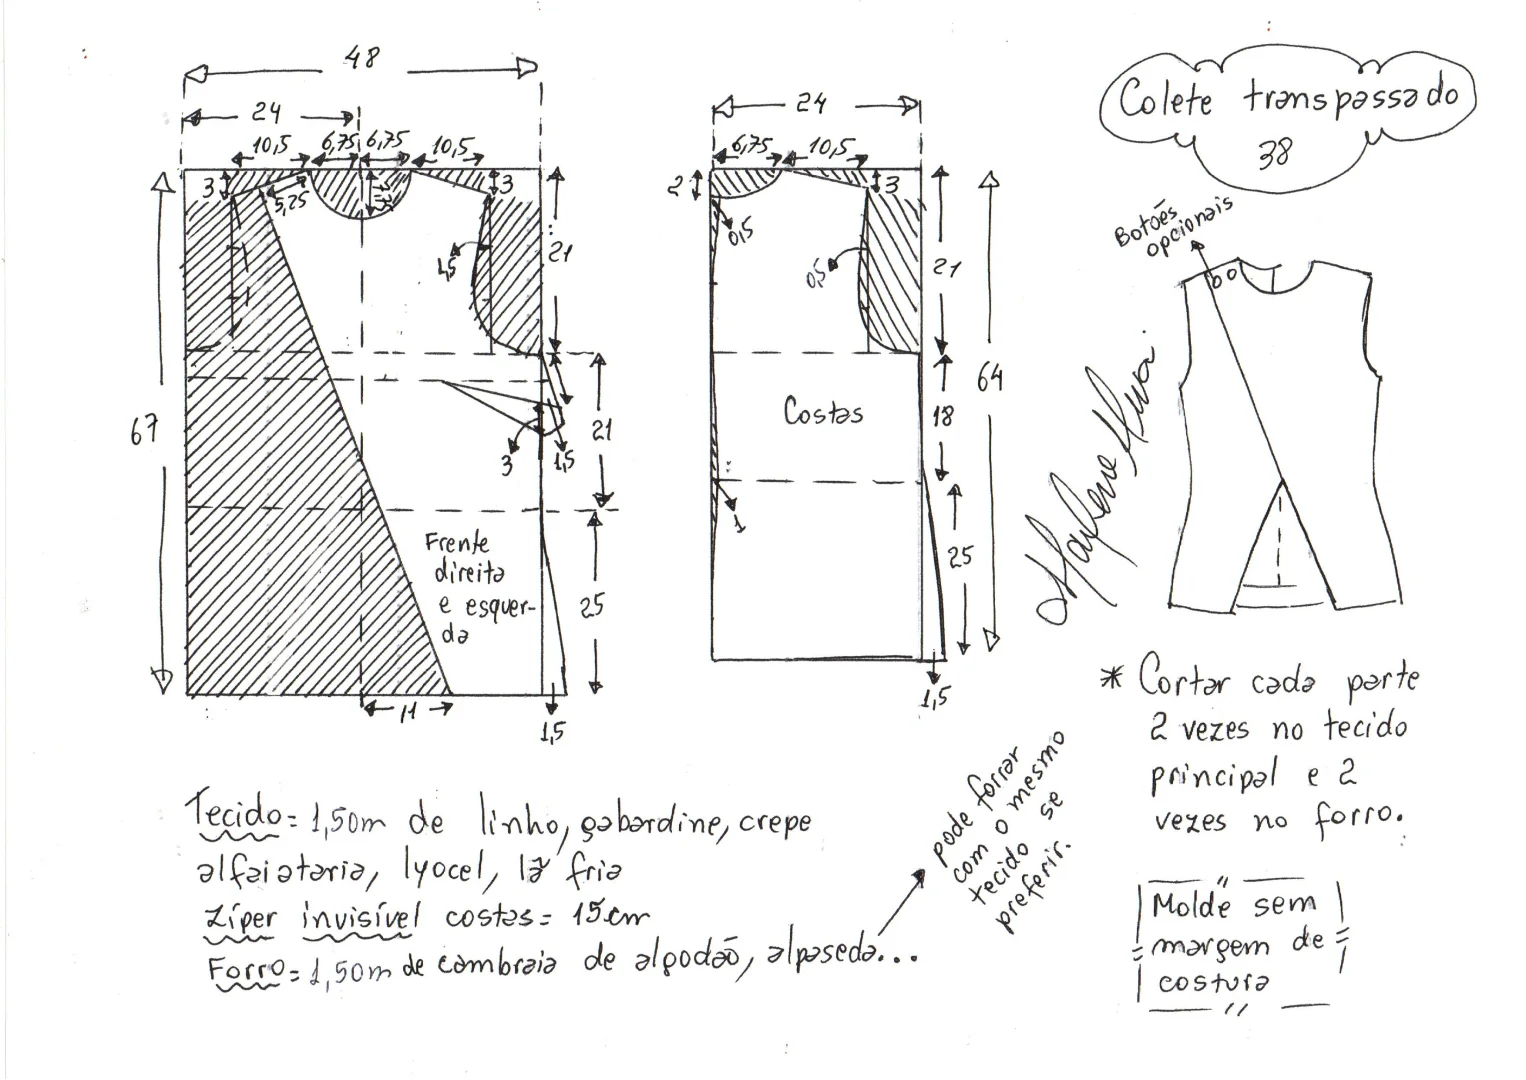 Colete transpassado
38
48
24
10,5
6,75
6,75
10,5
3
5,25
3
1,5
21
67
21
3
1,5
Frente
direita
e esquer-
da
25
11
1,5
24
6,75
10,5
2
3
0,5
0,5
21
64
Costas
18
1
25
1,5
Botões
opcionais
* Cortar cada parte
2 vezes no tecido
principal e 2
vezes no forro.
Molde sem
margem de
costura
Tecido = 1,50m de linho, gabardine, crepe
alfaiataria, lyocel, lã fria
Zíper invisível costas = 15cm
Forro = 1,50m de cambraia de algodão, alpaseda...
pode forrar
com o mesmo
tecido se
preferir.